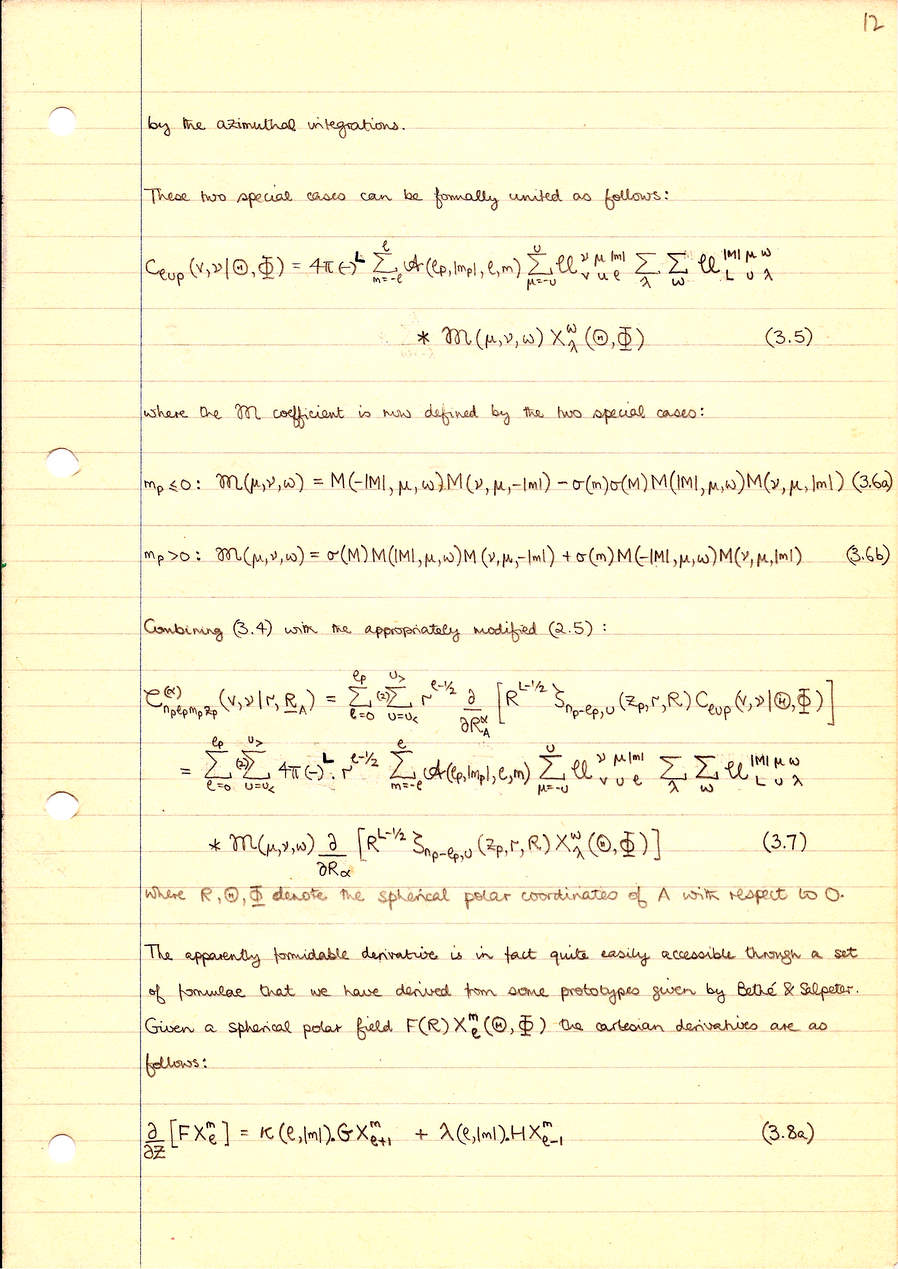 12
by the azimuthal integrations.
These two special cases can be formally united as follows:
C_{ℓup}(v,ν|Θ,Φ) = 4π(-)^L Σ_{m=-ℓ}^{ℓ} 𝒜(ℓ_p,|m_p|,ℓ,m) Σ_{μ=-υ}^{υ} 𝒰^{ν μ |m|}_{v u ℓ} Σ_λ Σ_ω 𝒰^{|M| μ ω}_{L υ λ}
* ℳ(μ,ν,ω) X_λ^ω(Θ,Φ) (3.5)
where the ℳ coefficient is now defined by the two special cases:
m_p ≤ 0: ℳ(μ,ν,ω) = M(-|M|,μ,ω)M(ν,μ,-|m|) - σ(m)σ(M)M(|M|,μ,ω)M(ν,μ,|m|) (3.6a)
m_p > 0: ℳ(μ,ν,ω) = σ(M)M(|M|,μ,ω)M(ν,μ,-|m|) + σ(m)M(-|M|,μ,ω)M(ν,μ,|m|) (3.6b)
Combining (3.4) with the appropriately modified (2.5):
𝒞^{(α)}_{n_pℓ_pm_pz_p}(v,ν|r,R_A) = Σ_{ℓ=0}^{ℓ_p} (2)Σ_{υ=υ_<}^{υ_>} r^{ℓ-1/2} ∂/∂R_A^α [R^{L-1/2} ζ_{n_p-ℓ_p,υ}(z_p,r,R) C_{ℓup}(v,ν|Θ,Φ)]
= Σ_{ℓ=0}^{ℓ_p} (2)Σ_{υ=υ_<}^{υ_>} 4π(-)^L . r^{ℓ-1/2} Σ_{m=-ℓ}^{ℓ} 𝒜(ℓ_p,|m_p|,ℓ,m) Σ_{μ=-υ}^{υ} 𝒰^{ν μ |m|}_{v υ ℓ} Σ_λ Σ_ω 𝒰^{|M| μ ω}_{L υ λ}
* ℳ(μ,ν,ω) ∂/∂R_α [R^{L-1/2} ζ_{n_p-ℓ_p,υ}(z_p,r,R) X_λ^ω(Θ,Φ)] (3.7)
where R,Θ,Φ denote the spherical polar coordinates of A with respect to O.
The apparently formidable derivative is in fact quite easily accessible through a set
of formulae that we have derived from some prototypes given by Bethé & Salpeter.
Given a spherical polar field F(R)X_ℓ^m(Θ,Φ) the cartesian derivatives are as
follows:
∂/∂Z [FX_ℓ^m] = κ(ℓ,|m|).GX_{ℓ+1}^m + λ(ℓ,|m|).HX_{ℓ-1}^m (3.8a)